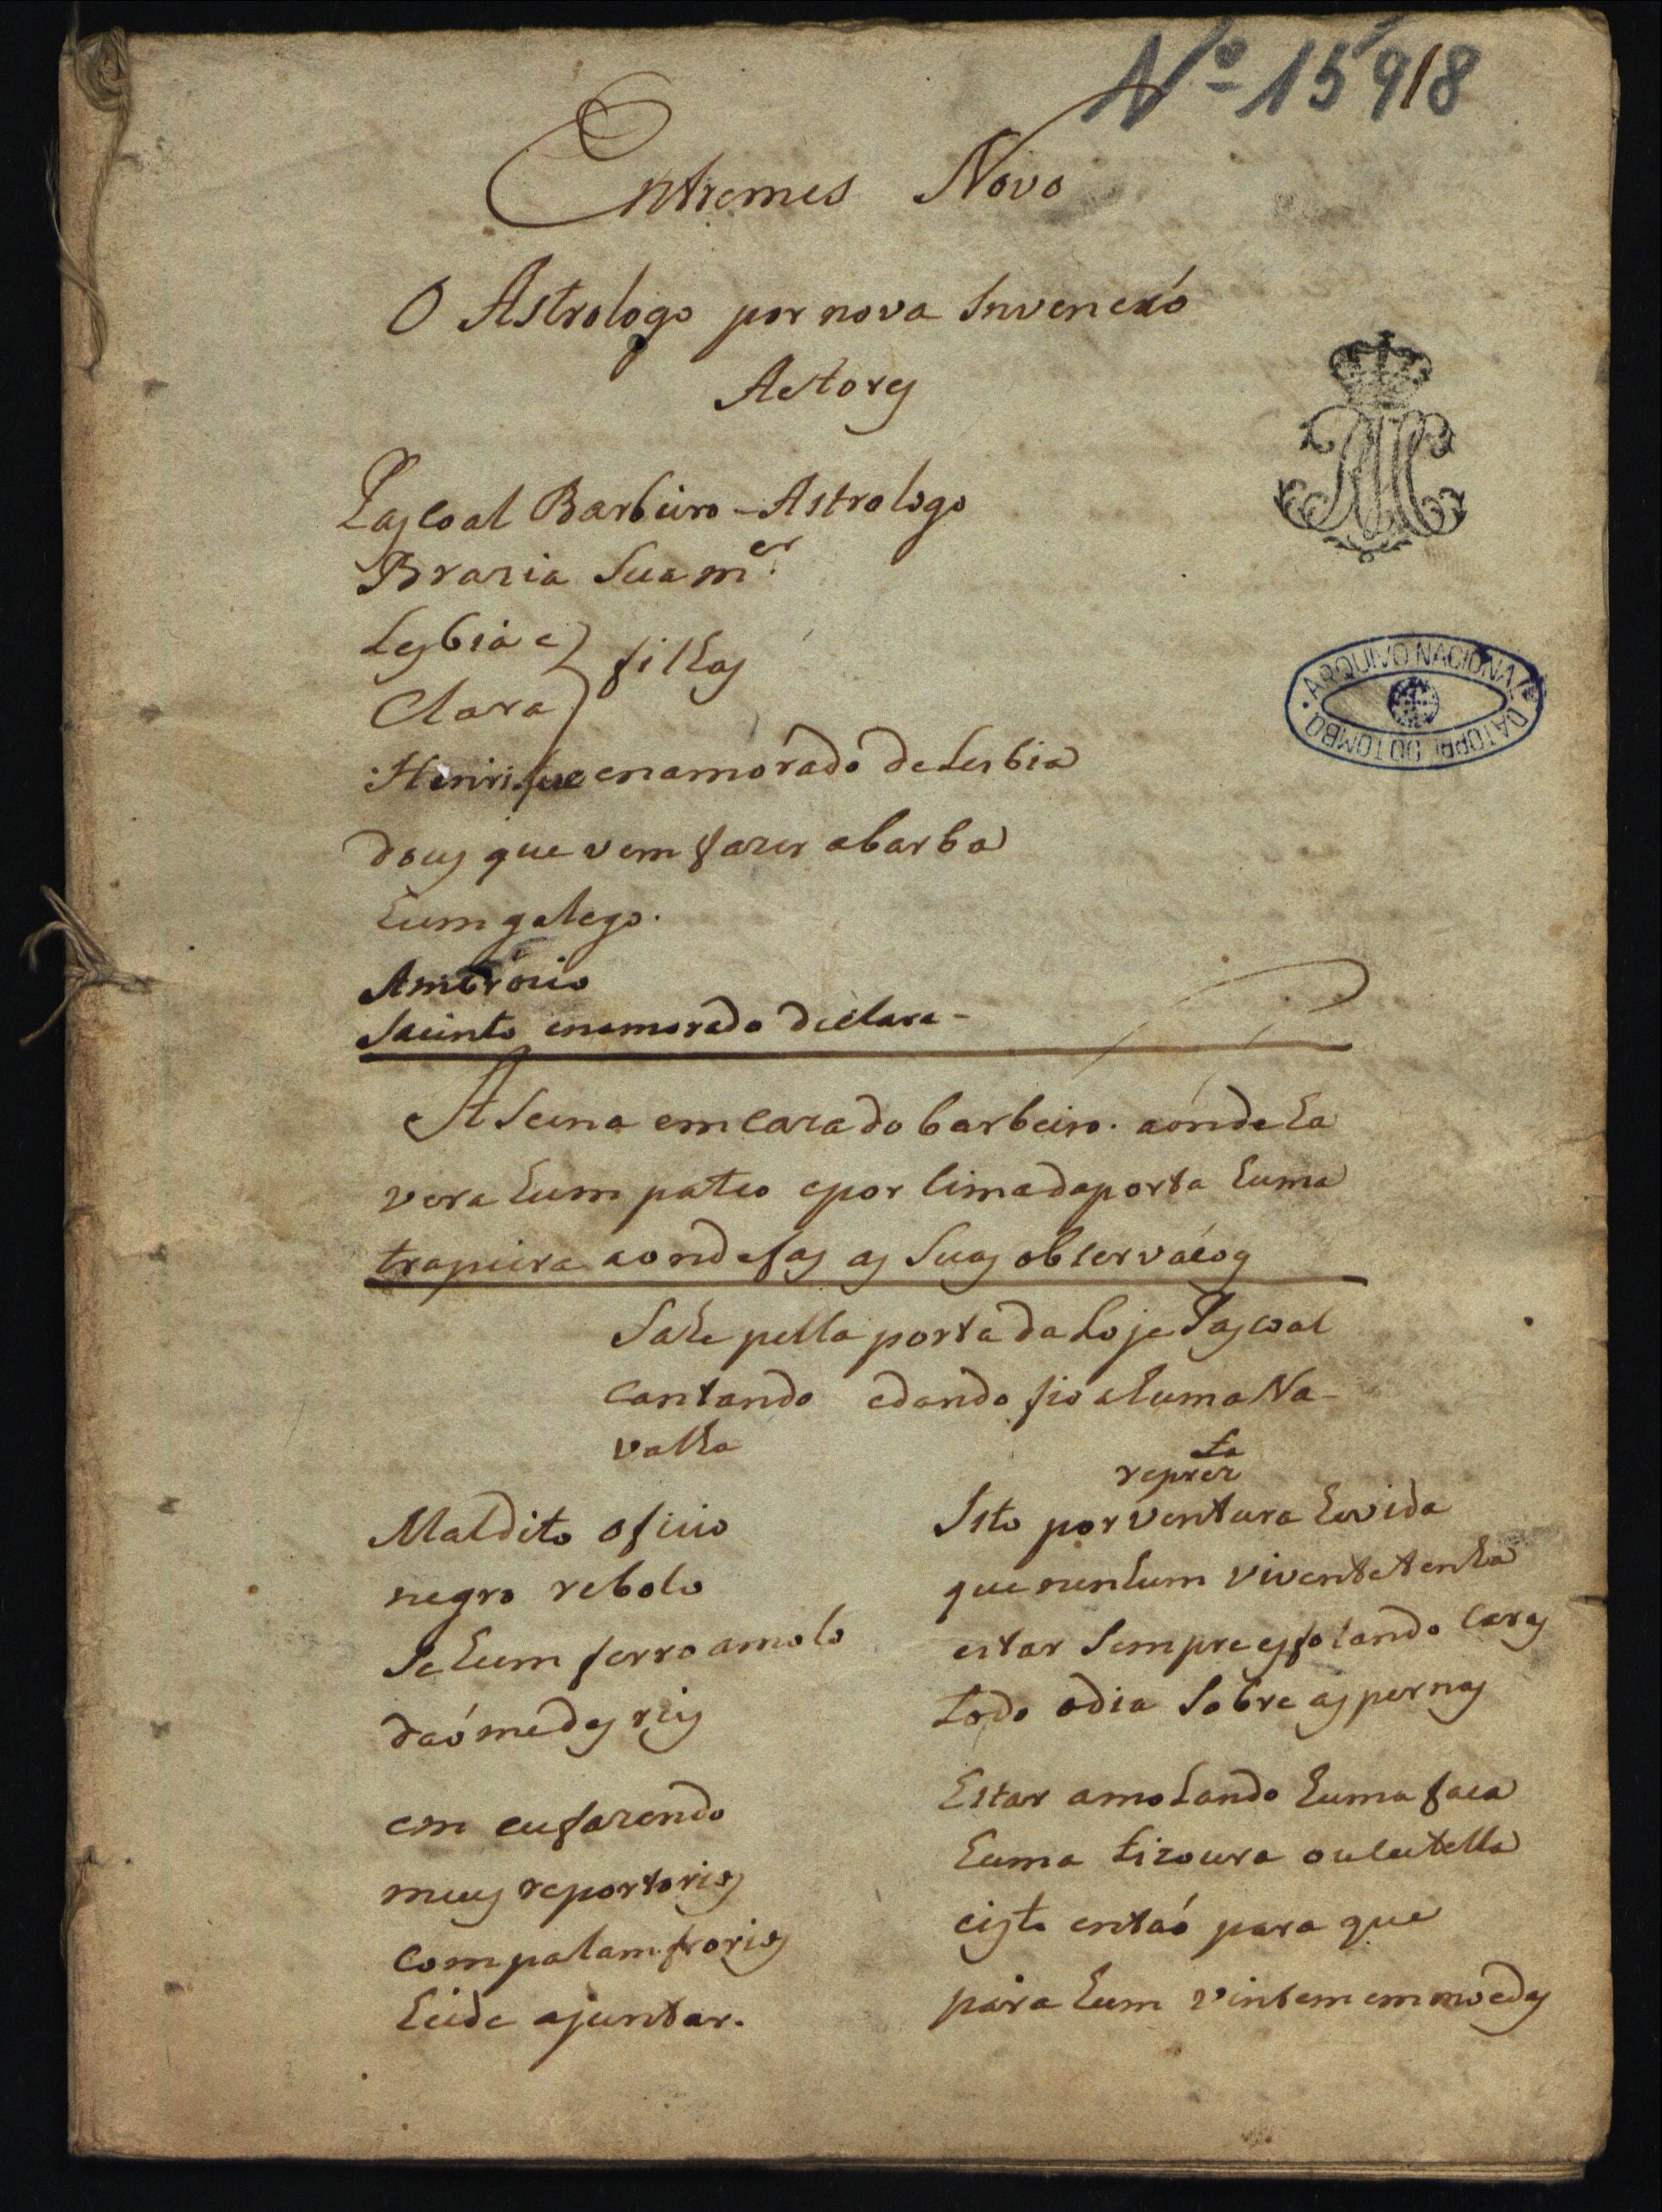 Nº 15918
Entremes Novo
O Astrologo por nova Invencaó
Actores
Pascoal Barbeiro - Astrologo
Brazia sua m.er
Lesbia e
Clara
filhas
Henrique enamorado de Lesbia
dous que vem fazer a barba
hum galego.
Ambrozio
Jacinto enamorado de Clara -
A Scena em caza do barbeiro. aonde ha
vera hum pateo e por sima da porta huma
trapeira aonde fas as suas observaçoẽs
Sahe pella porta da Loje Pascoal
cantando e dando fio a huma Na-
valha
Maldito oficio
negro rebolo
se hum ferro amolo
daó me des reis
em eu fazendo
meus reportorios
com palamfrorios
heide ajuntar.
reprez.ta
Isto por ventura he vida
que nenhum vivente tenha
estar sempre esfolando caras
todo o dia sobre as pernas
Estar amolando huma faca
huma tizoura ou cutella
e isto entaó para que
para hum vintem em moedas
ARQUIVO NACIONAL DA TORRE DO TOMBO